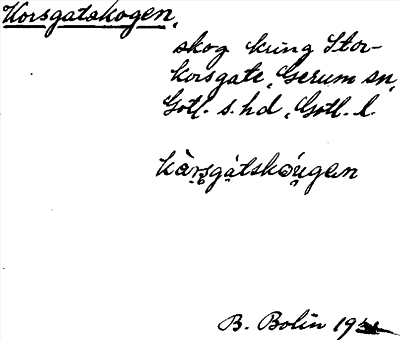 Korsgatskogen,
skog kring Stor-
korsgate, Gerum sn,
Gotl. s. hd, Gotl. l.
kàrsgátskǫúgen
B. Bolin